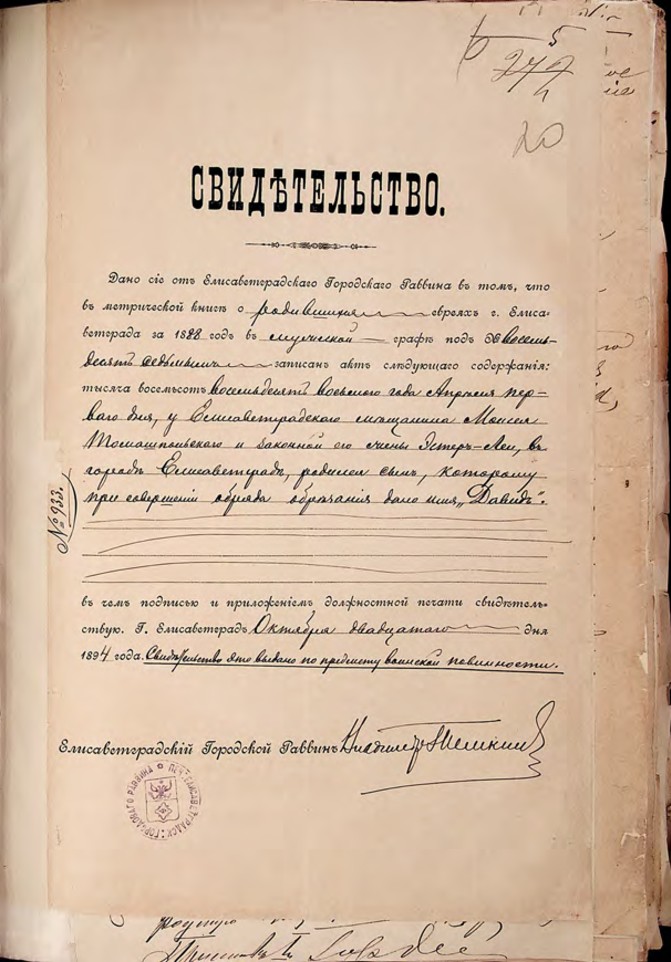 5
272
4
20
СВИДѢТЕЛЬСТВО.
Дано сіе отъ Елисаветградскаго Городскаго Раввина въ томъ, что
въ метрической книгѣ о родившихся евреяхъ г. Елиса-
ветграда за 1888 годъ въ мужеской графѣ подъ № восемь-
десятъ седьмымъ записанъ актъ слѣдующаго содержанія:
тысяча восемьсотъ восемьдесятъ восьмого года Апрѣля пер-
ваго дня, у Елисаветградскаго мѣщанина Моисея
Томашпольскаго и законной его жены Эстеръ-Леи, въ
городѣ Елисаветградѣ, родился сынъ, которому
при совершеніи обряда обрѣзанія дано имя „Давидъ".
№ 933.
въ чемъ подписью и приложеніемъ должностной печати свидѣтель-
ствую. Г. Елисаветградъ Октября двадцатаго дня
1894 года. Свидѣтельство это выдано по предмету воинской повинности.
Елисаветградскій Городской Раввинъ Владимиръ Темкинъ
ПЕЧ. ЕЛИСАВЕТГРАДСК: ГОРОДОВАГО РАВВИНА